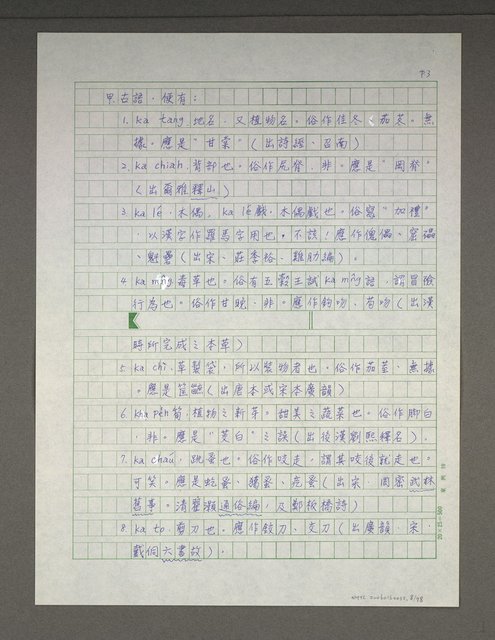 甲古語，便有：
1. ka tang，地名，又植物名。俗作佳冬、茄苳。無
據。應是“甘棠”（出詩經、召南）
2. ka chiah，背部也。俗作尻脊，非。應是“岡脊”
（出爾雅釋山）
3. ka lé，木偶，ka lé戲，木偶戲也。俗寫“加禮”
，以漢字作羅馬字用也，不該！應作傀儡、窟磊
、魁壘（出宋、莊季裕、雞肋編）。
4. ka mn̂g 毒草也。俗有五穀王試 ka mn̂g 語，謂冒險
行為也。俗作甘晚，非。應作鉤吻、苟吻（出漢
時所完成之本草）
5. ka chì，草製袋，所以裝物者也。俗作茄荎，無據
。應是筐（出唐本或宋本廣韻）
6. kha pe̍h 筍，植物之新芽。甜美之蔬菜也。俗作脚白
，非。應是“茭白”之誤（出後漢劉熙釋名）。
7. ka chaú，跳蚤也。俗作咬走，謂其咬後就走也。
可笑。應是虼蚤、獦蚤、疙蚤（出宋、周密武林
舊事。清翟灝通俗編，及鄭板橋詩）
8. ka to，剪刀也。應作鉸刀、交刀（出廣韻、宋、
戴侗六書故）。
20×25=500